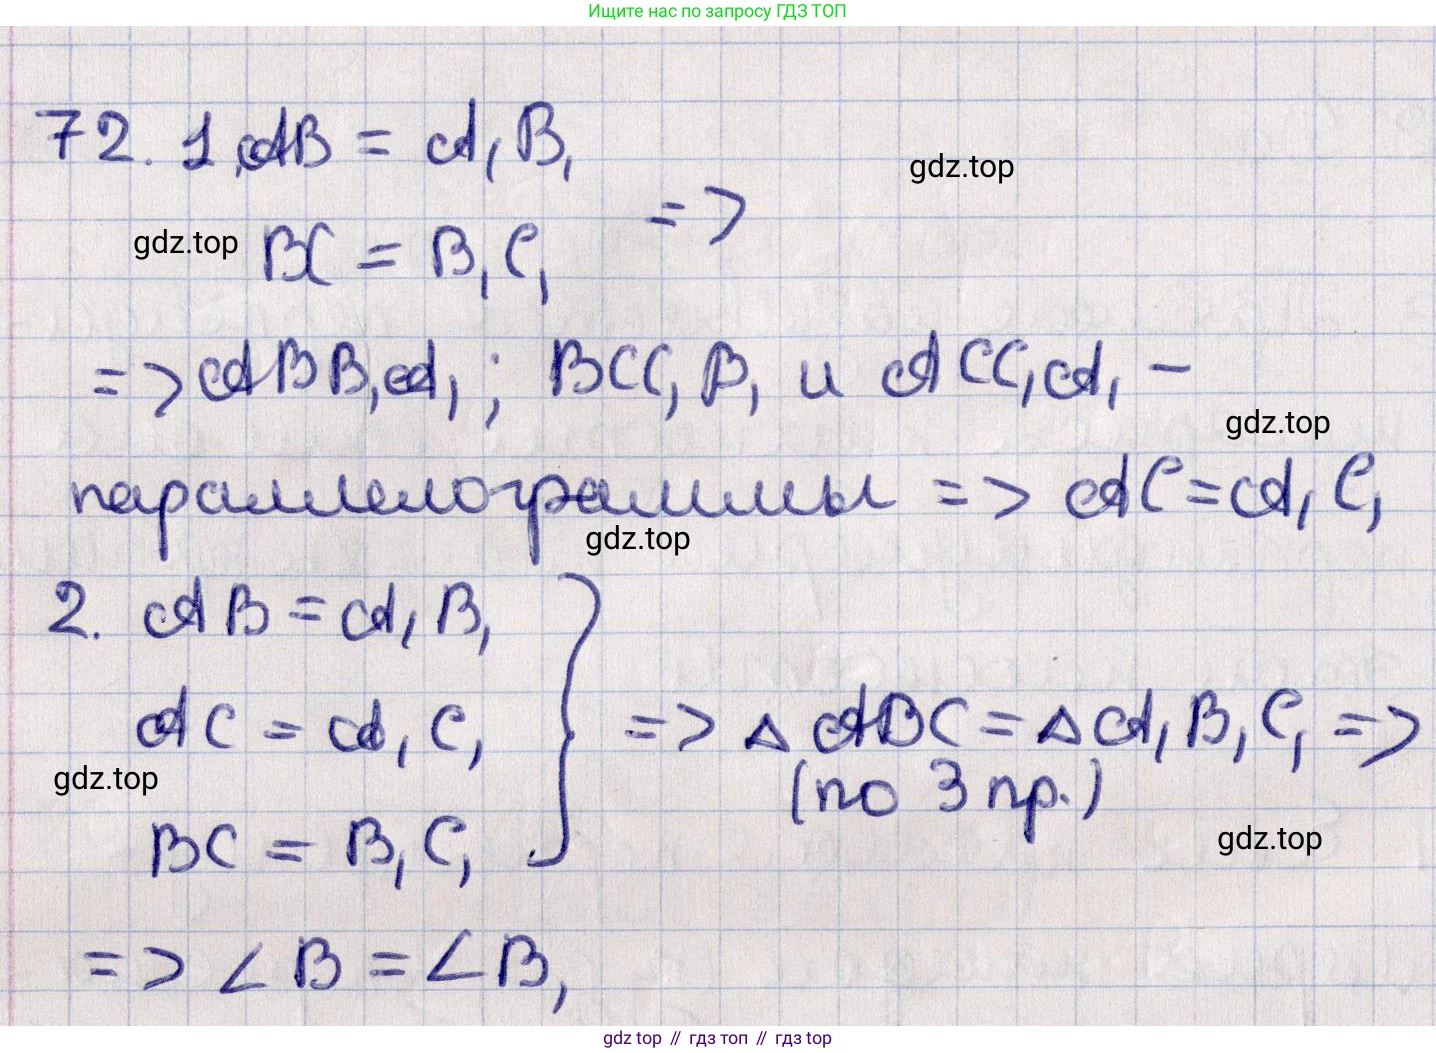 Ищите нас по запросу ГДЗ ТОП
72. 1 AB = A₁B₁
gdz.top
=>
gdz.top BC = B₁C₁
=> ABB₁A₁ ; BCC₁B₁ и ACC₁A₁ –
gdz.top
параллелограммы => AC = A₁C₁
gdz.top
2. AB = A₁B₁
AC = A₁C₁ } => △ ABC = △ A₁B₁C₁ =>
gdz.top (по 3 пр.)
BC = B₁C₁ gdz.top
=> ∠B = ∠B₁
gdz top // гдз топ // гдз top